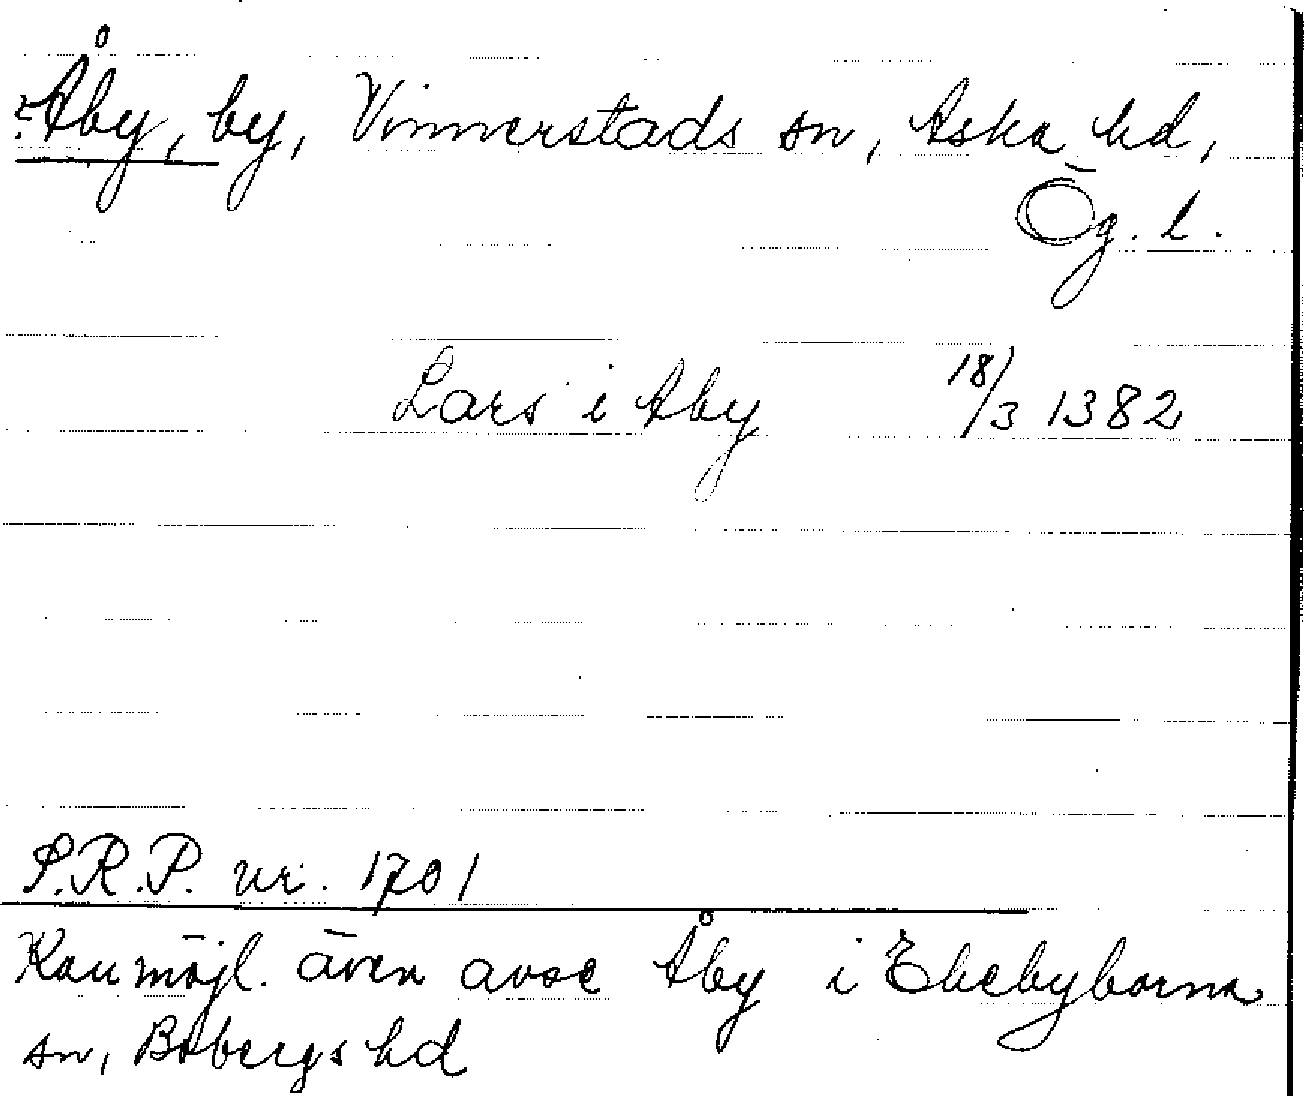 ?Åby, by, Vinnerstads sn, Aska hd,
Ög. l.
Lars i Aby 18/3 1382
S.R.P. nr. 1701
Kan möjl. även avse Åby i Ekebyborna
sn, Bobergs hd